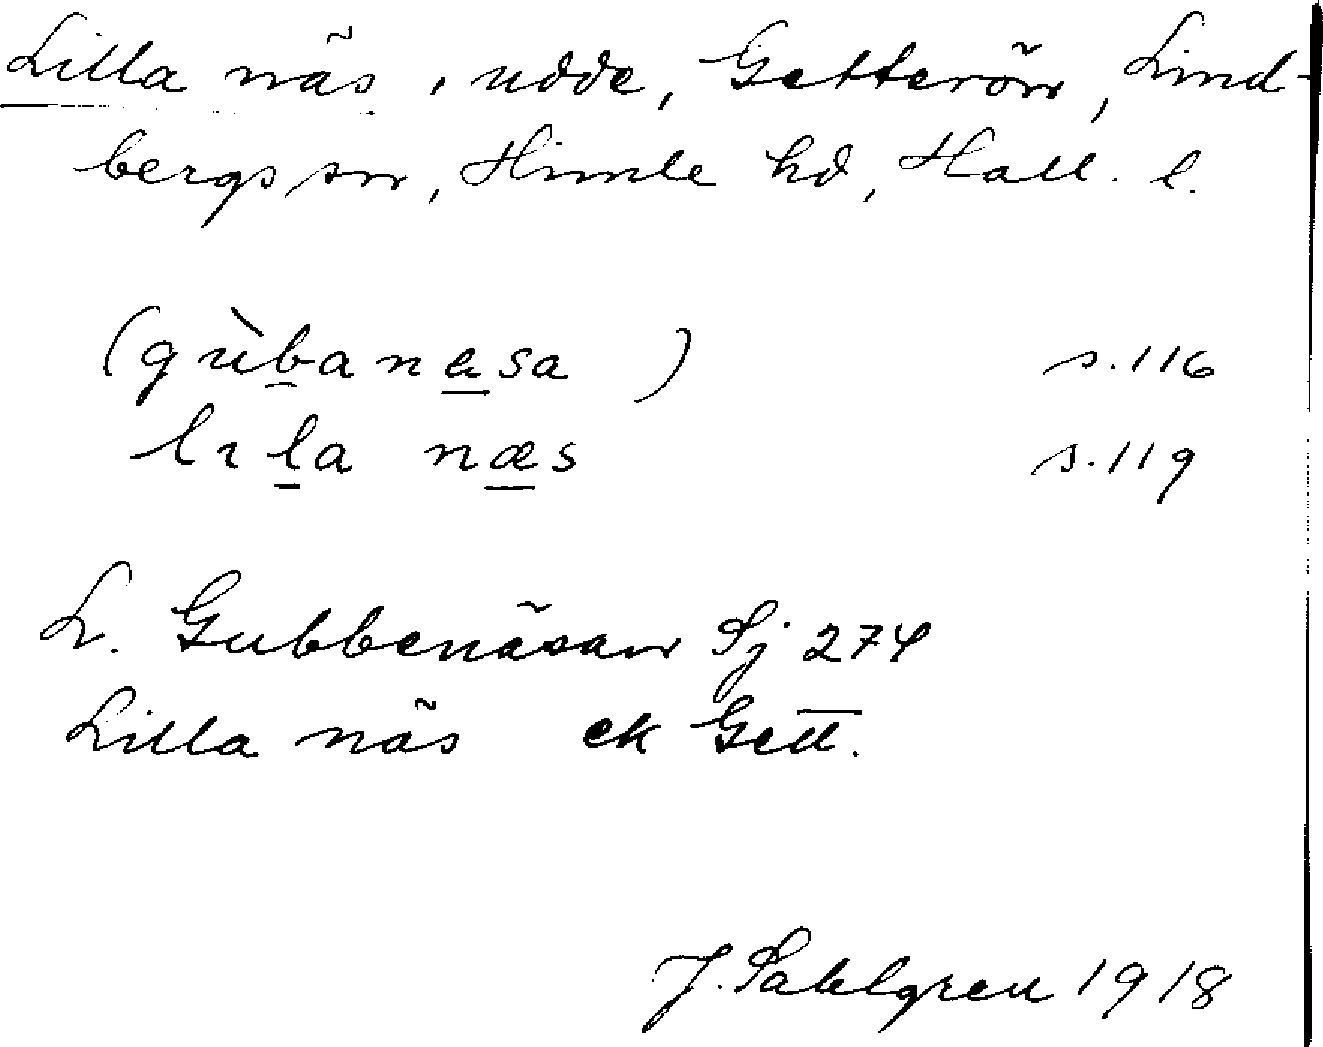 Lilla näs, udde, Getterön, Lind-
bergs sn, Himle hd, Hall. l.
(gùbanæsa) s.116
lıla næs s.119
L. Gubbenäsan Sj 274
Lilla näs ek Gett.
J. Sahlgren 1918